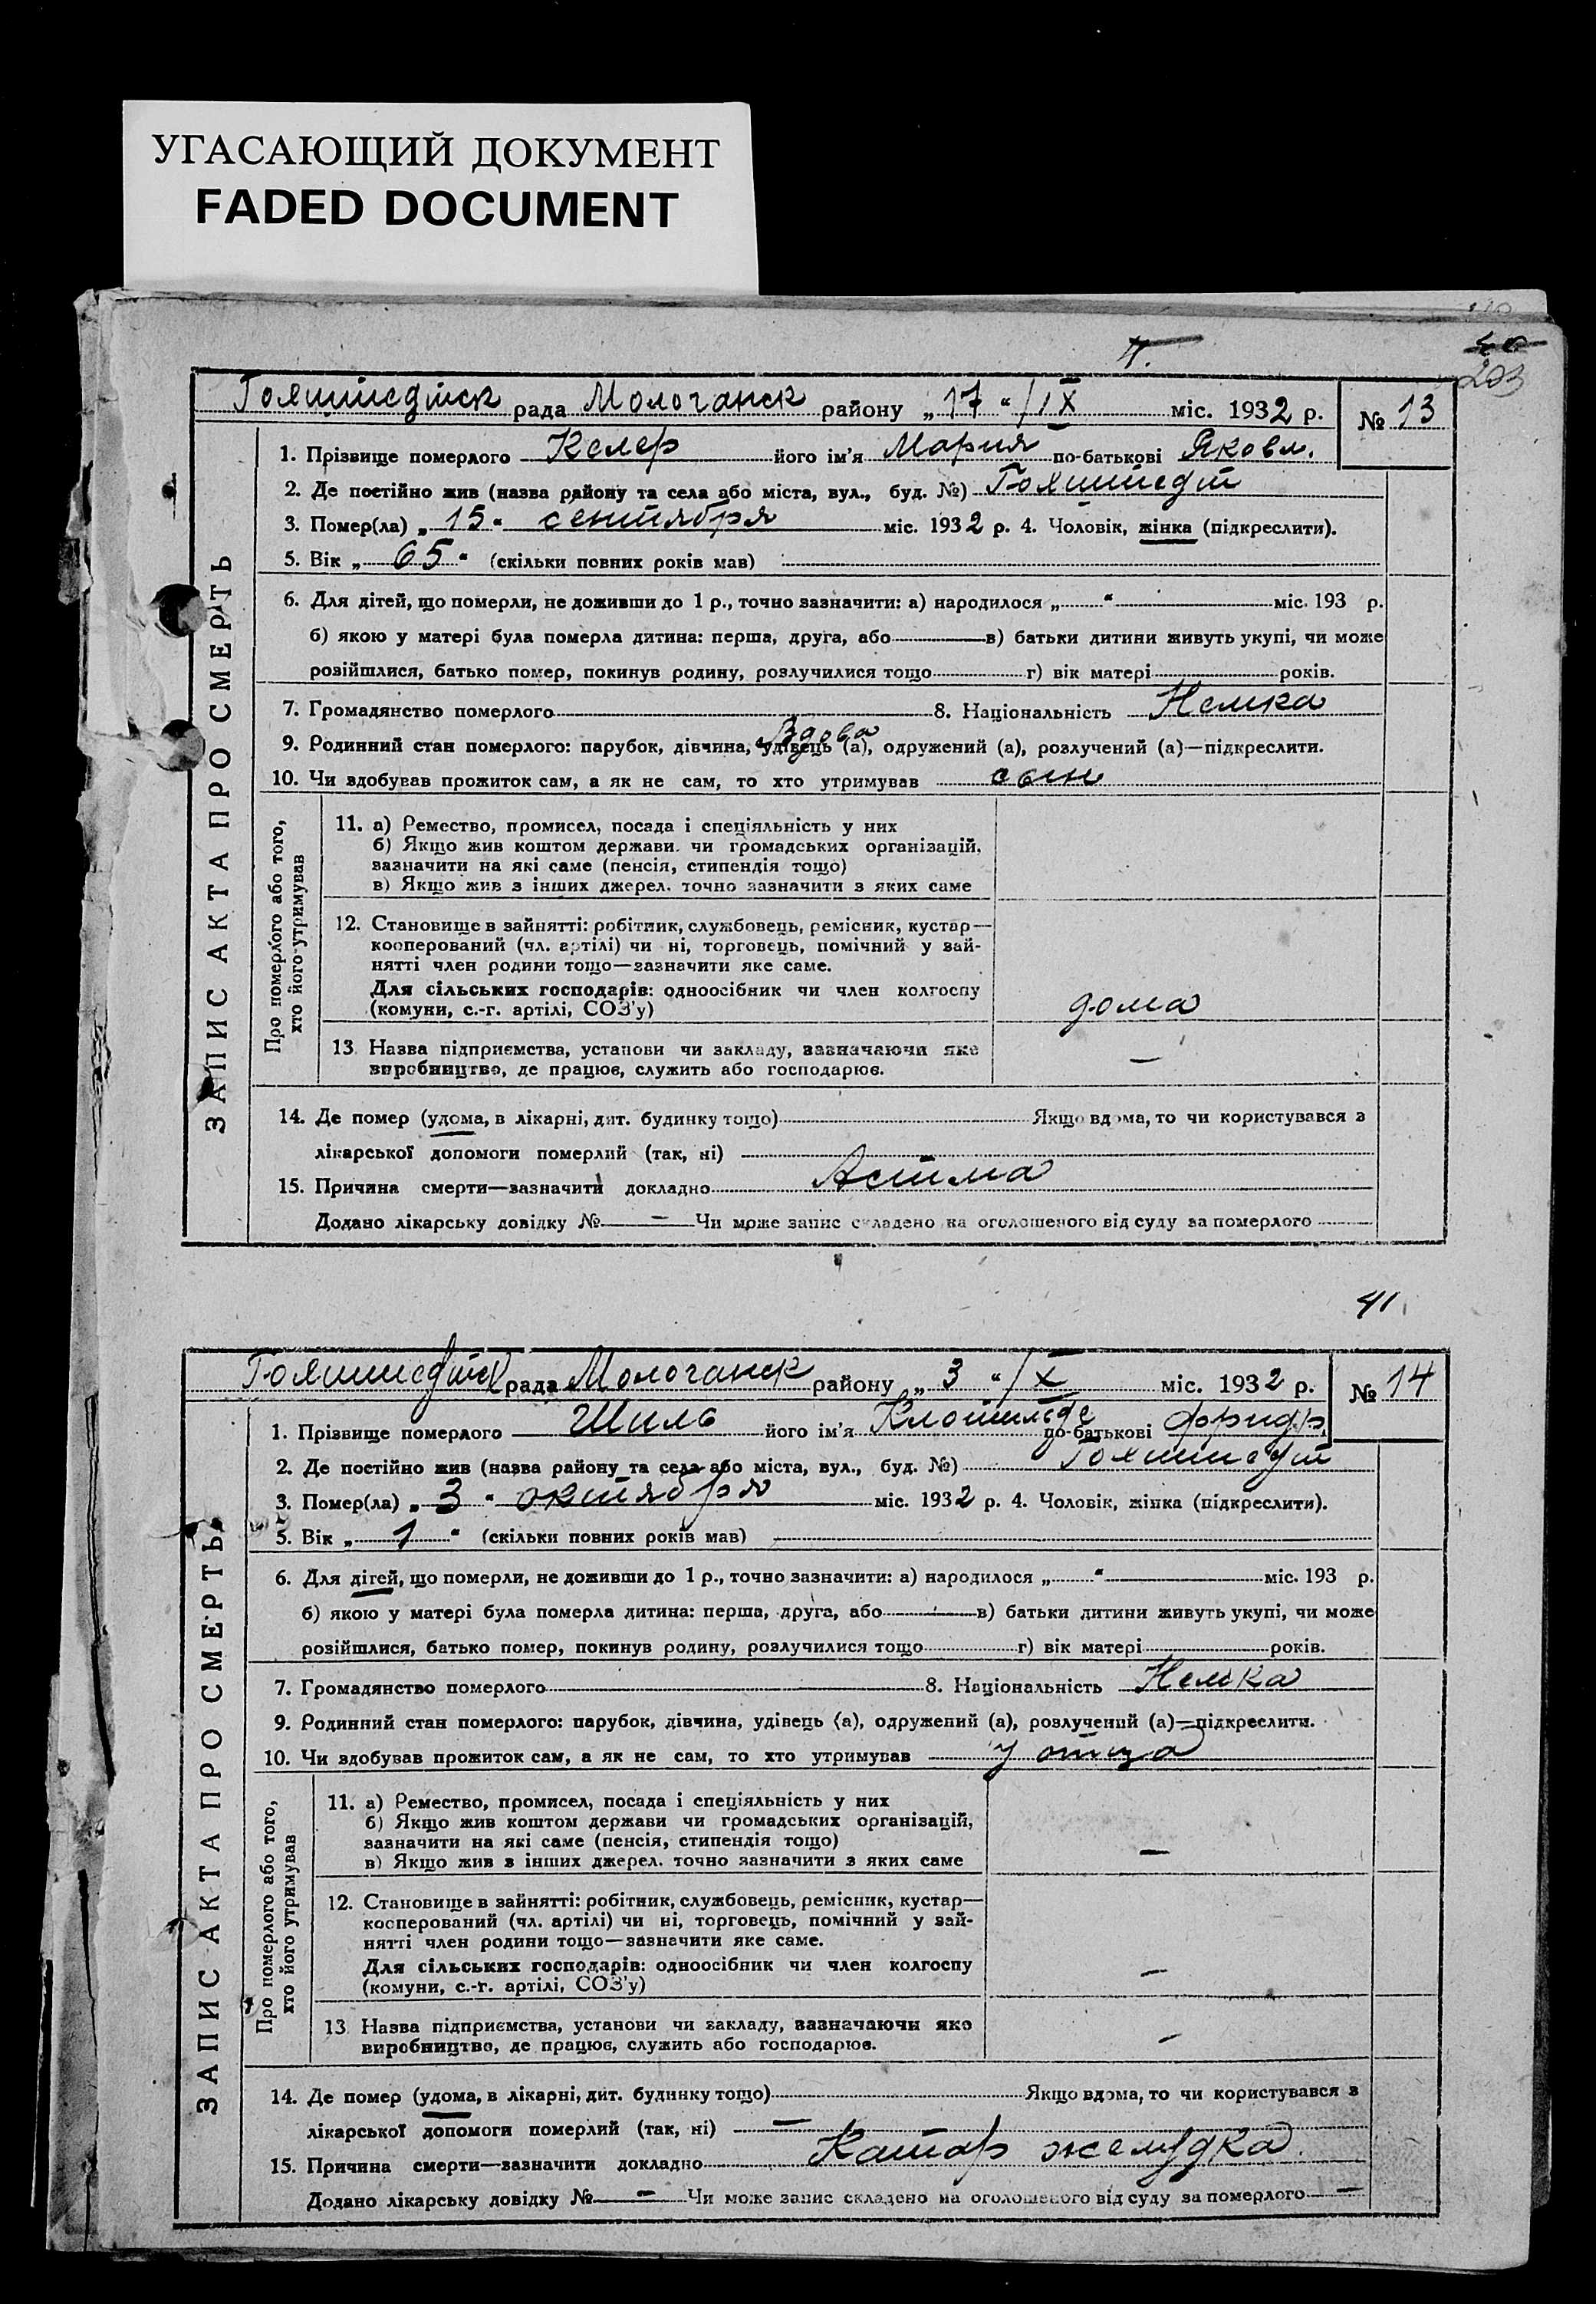 УГАСАЮЩИЙ ДОКУМЕНТ
FADED DOCUMENT
203
Гоянштедтск рада Молочанск району „17“/IX міс. 1932 р. № 13
ЗАПИС АКТА ПРО СМЕРТЬ
1. Прізвище померлого Келер його ім'я Мария по-батькові Яковл.
2. Де постійно жив (назва району та села або міста, вул., буд. №) Гоянштедт
3. Помер(ла) „15“ сентября міс. 1932 р. 4. Чоловік, жінка (підкреслити).
5. Вік „65“ (скільки повних років мав)
6. Для дітей, що померли, не доживши до 1 р., точно зазначити: а) народилося „ “ міс. 193 р.
б) якою у матері була померла дитина: перша, друга, або в) батьки дитини живуть укупі, чи може
розійшлися, батько помер, покинув родину, розлучилися тощо г) вік матері років.
7. Громадянство померлого 8. Національність Немка
Вдова
9. Родинний стан померлого: парубок, дівчина, удівець (а), одружений (а), розлучений (а)—підкреслити.
10. Чи здобував прожиток сам, а як не сам, то хто утримував сын
Про померлого або того, хто його утримував
11. а) Ремество, промисел, посада і спеціяльність у них
б) Якщо жив коштом держави чи громадських організацій,
зазначити на які саме (пенсія, стипендія тощо)
в) Якщо жив з інших джерел, точно зазначити з яких саме
12. Становище в зайнятті: робітник, службовець, ремісник, кустар—
кооперований (чл. артілі) чи ні, торговець, помічний у зай-
нятті член родини тощо—зазначити яке саме.
Для сільських господарів: одноосібник чи член колгоспу
(комуни, с.-г. артілі, СОЗ'у) дома
13 Назва підприємства, установи чи закладу, зазначаючи яке —
виробництво, де працює, служить або господарює.
14. Де помер (удома, в лікарні, дит. будинку тощо) Якщо вдома, то чи користувався з
лікарської допомоги померлий (так, ні)
15. Причина смерти—зазначити докладно Астма
Додано лікарську довідку № — Чи може запис складено на оголошеного від суду за померлого
41.
Гоянштедтск рада Молочанск району „3“/X міс. 1932 р. № 14
ЗАПИС АКТА ПРО СМЕРТЬ
1. Прізвище померлого Шиль його ім'я Клотильде по-батькові Фридр.
2. Де постійно жив (назва району та села або міста, вул., буд. №) Гоянштедт
3. Помер(ла) „3“ октября міс. 1932 р. 4. Чоловік, жінка (підкреслити).
5. Вік „1“ (скільки повних років мав)
6. Для дітей, що померли, не доживши до 1 р., точно зазначити: а) народилося „ “ міс. 193 р.
б) якою у матері була померла дитина: перша, друга, або в) батьки дитини живуть укупі, чи може
розійшлися, батько помер, покинув родину, розлучилися тощо г) вік матері років.
7. Громадянство померлого 8. Національність Немка
9. Родинний стан померлого: парубок, дівчина, удівець (а), одружений (а), розлучений (а)—підкреслити.
10. Чи здобував прожиток сам, а як не сам, то хто утримував у отца
Про померлого або того, хто його утримував
11. а) Ремество, промисел, посада і спеціяльність у них
б) Якщо жив коштом держави чи громадських організацій,
зазначити на які саме (пенсія, стипендія тощо) —
в) Якщо жив з інших джерел, точно зазначити з яких саме
12. Становище в зайнятті: робітник, службовець, ремісник, кустар—
кооперований (чл. артілі) чи ні, торговець, помічний у зай-
нятті член родини тощо—зазначити яке саме.
Для сільських господарів: одноосібник чи член колгоспу —
(комуни, с.-г. артілі, СОЗ'у)
13 Назва підприємства, установи чи закладу, зазначаючи яке —
виробництво, де працює, служить або господарює.
14. Де помер (удома, в лікарні, дит. будинку тощо) Якщо вдома, то чи користувався з
лікарської допомоги померлий (так, ні) —
15. Причина смерти—зазначити докладно Катар желудка.
Додано лікарську довідку № — Чи може запис складено на оголошеного від суду за померлого —